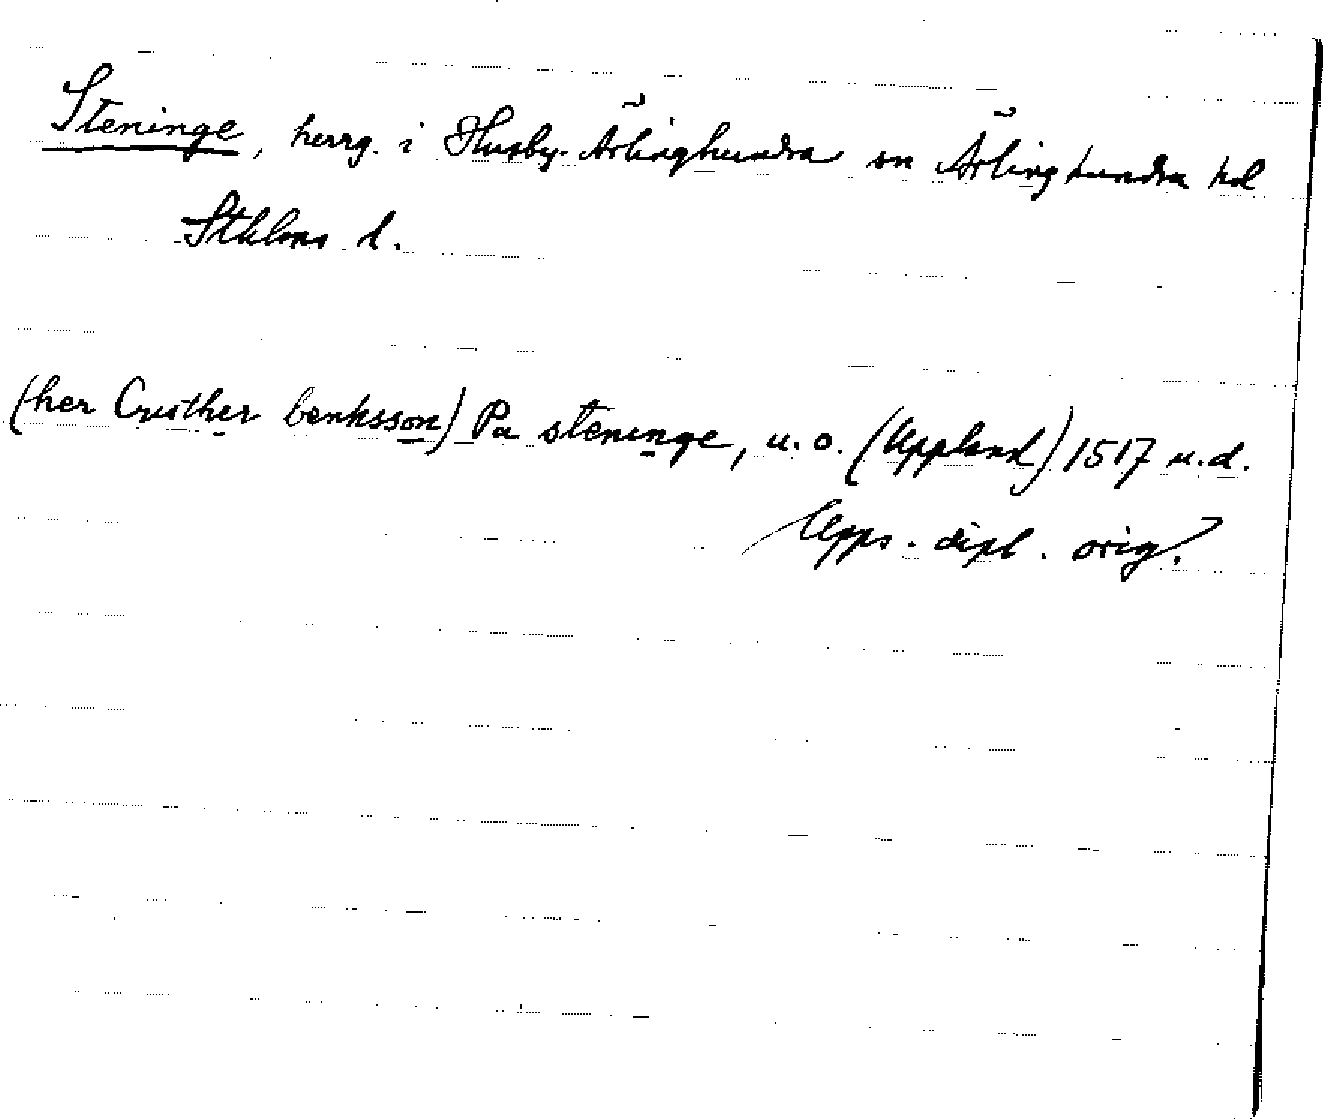 Steninge, herrg. i Husby-Ärlinghundra sn Ärlinghundra hd
Sthlms l.
(her Crister benksson) Pa steninge, u.o. (Uppland) 1517 u.d.
Upps. dipl. orig.